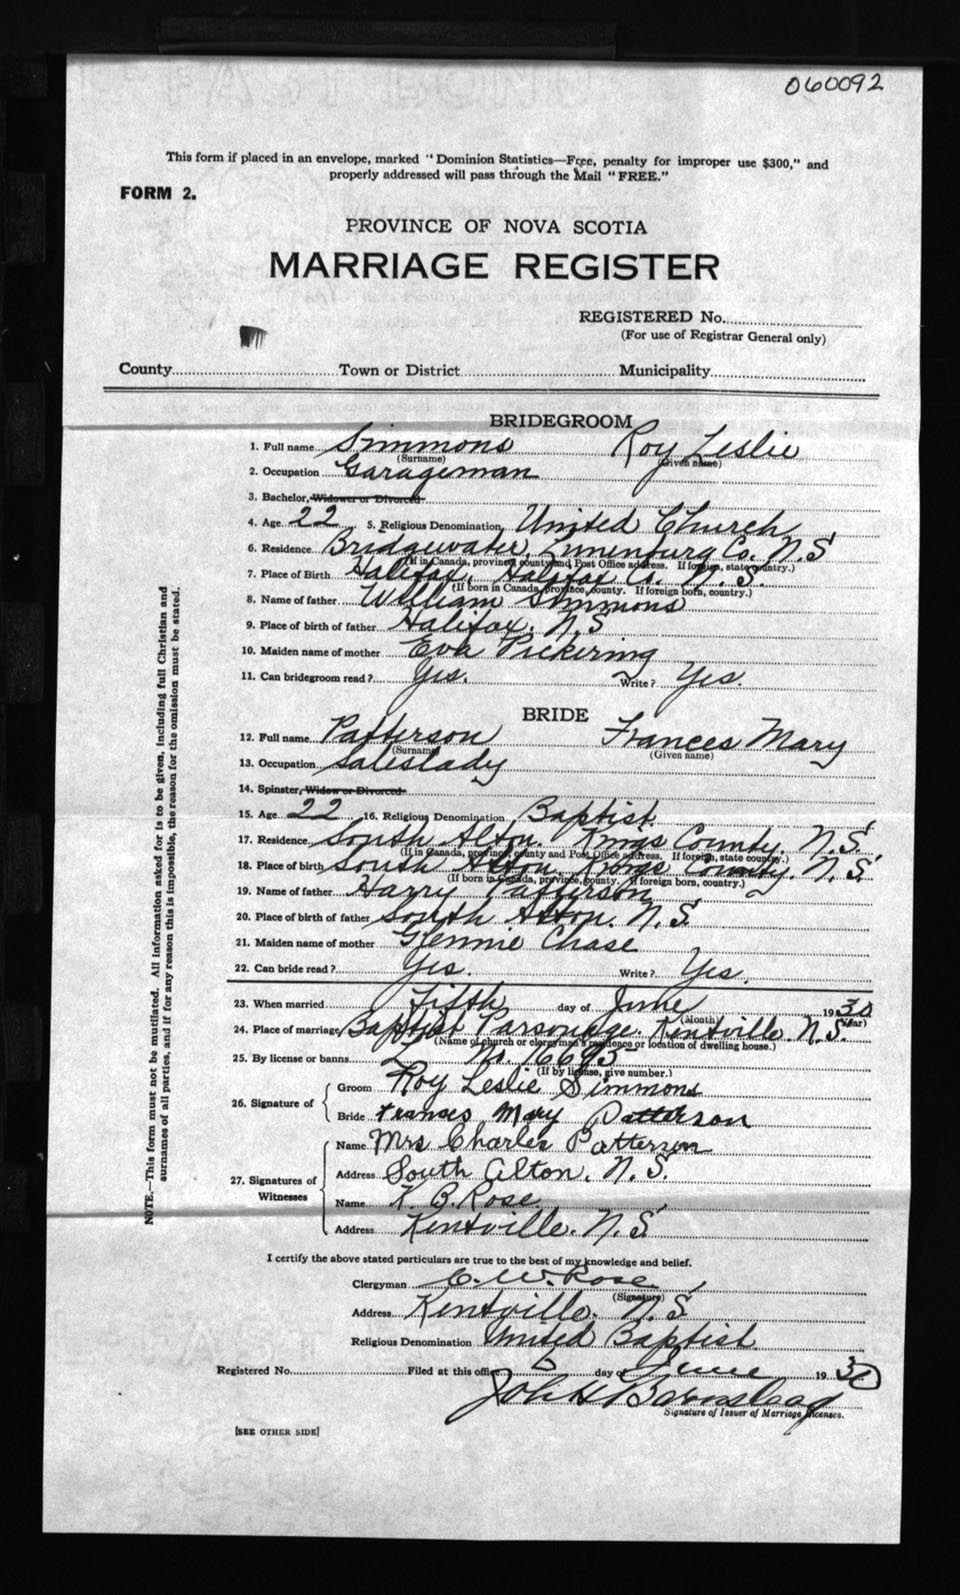 060092
This form if placed in an envelope, marked "Dominion Statistics—Free, penalty for improper use $300," and
properly addressed will pass through the Mail "FREE."
FORM 2.
PROVINCE OF NOVA SCOTIA
MARRIAGE REGISTER
REGISTERED No.
(For use of Registrar General only)
County Town or District Municipality
BRIDEGROOM
1. Full name Simmons Roy Leslie
(Surname) (Given name)
2. Occupation Garageman
3. Bachelor, Widower or Divorced
4. Age 22 5. Religious Denomination United Church
6. Residence Bridgewater, Lunenburg Co. N.S.
(If in Canada, province, county and Post Office address. If foreign, state country.)
7. Place of Birth Halifax, Halifax Co. N.S.
(If born in Canada, province, county. If foreign born, country.)
8. Name of father William Simmons
9. Place of birth of father Halifax, N.S.
10. Maiden name of mother Eva Pickering
11. Can bridegroom read? Yes. Write? Yes.
BRIDE
12. Full name Patterson Frances Mary
(Surname) (Given name)
13. Occupation Saleslady
14. Spinster, Widow or Divorced
15. Age 22 16. Religious Denomination Baptist.
17. Residence South Alton. Kings County. N.S.
(If in Canada, province, county and Post Office address. If foreign, state country.)
18. Place of birth South Alton, Kings County. N.S.
(If born in Canada, province, county. If foreign born, country.)
19. Name of father Harry Patterson
20. Place of birth of father South Alton. N.S.
21. Maiden name of mother Glennie Chase
22. Can bride read? Yes. Write? Yes.
23. When married Fifth day of June 1930
(Month) (Year)
24. Place of marriage Baptist Parsonage. Kentville N.S.
(Name of church or clergyman's residence or location of dwelling house.)
25. By license or banns L No. 16693
(If by license, give number.)
26. Signature of
Groom Roy Leslie Simmons
Bride Frances Mary Patterson
27. Signatures of Witnesses
Name Mrs Charles Patterson
Address South Alton, N.S.
Name K. B. Rose
Address Kentville. N.S.
I certify the above stated particulars are true to the best of my knowledge and belief.
Clergyman C. W. Rose
(Signature)
Address Kentville. N.S.
Religious Denomination United Baptist
Registered No. Filed at this office 6 day of June 1930
Signature of Issuer of Marriage Licenses.
[SEE OTHER SIDE]
NOTE.—This form must not be mutilated. All information asked for is to be given, including full Christian and
surnames of all parties, and if for any reason this is impossible, the reason for the omission must be stated.